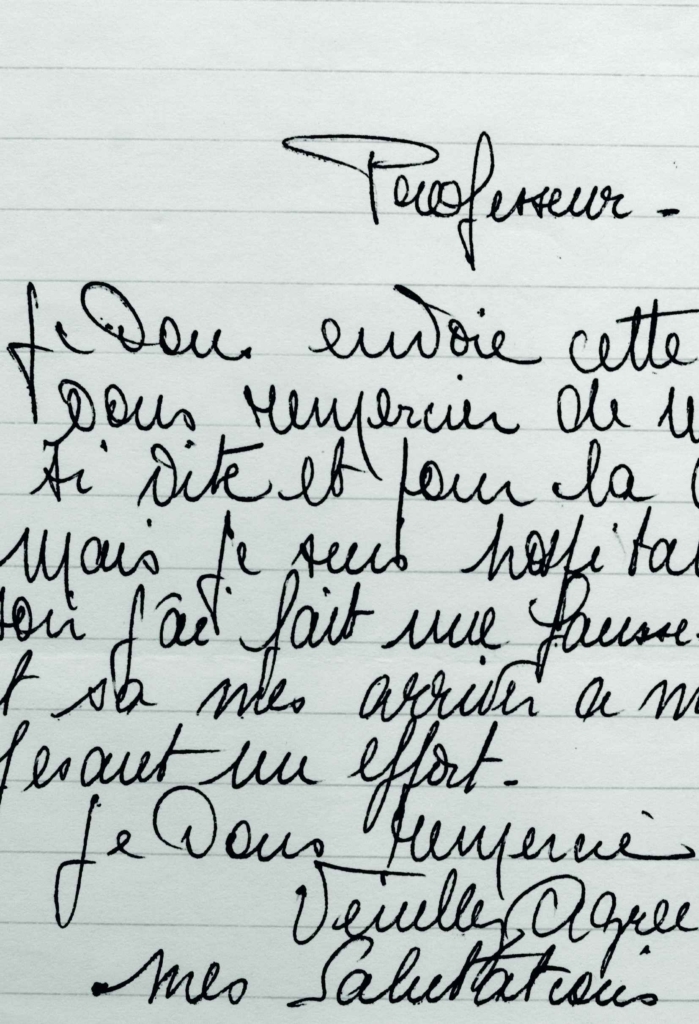 Professeur -
Je vous envoie cette
vous remercier de
si vite et pour la
Mais je suis hospital
soir j'ai fait une fausse
t sa mes arriver a m
fesant un effort.
Je vous remercie
Veuillez Agrée
mes Salutations